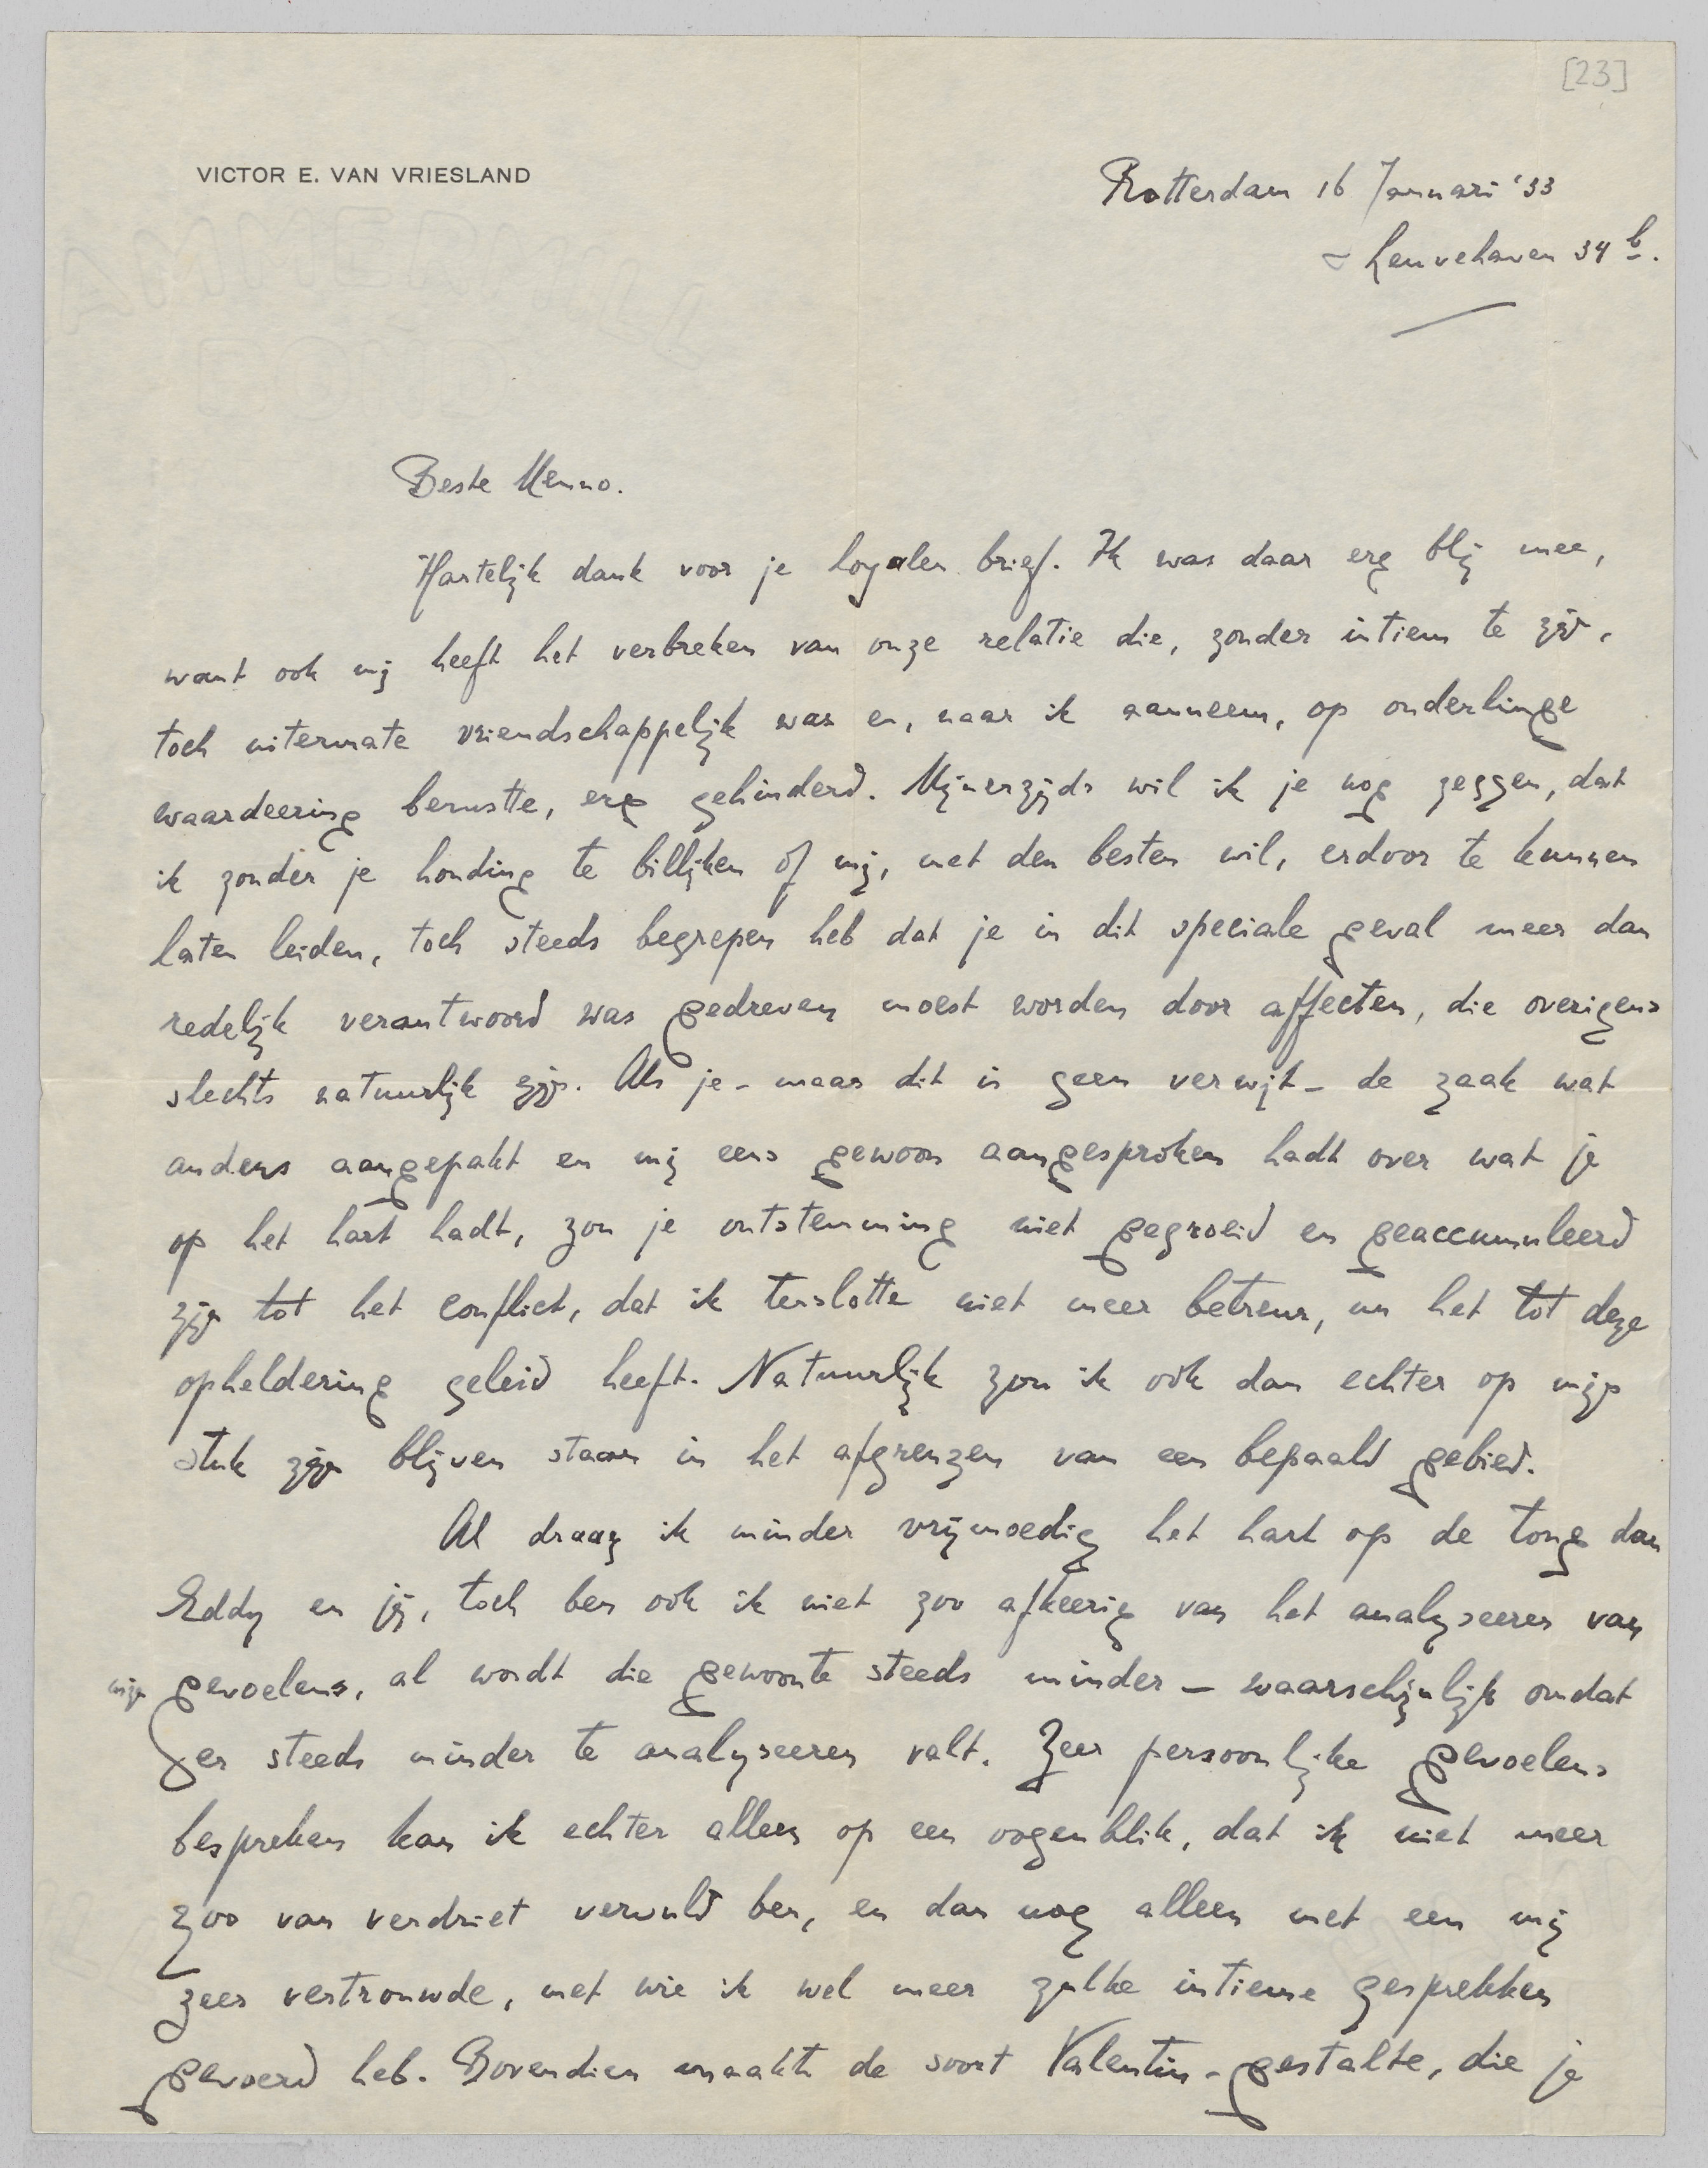 [23]
VICTOR E. VAN VRIESLAND
Rotterdam 16 Januari '33
Leuvehaven 34 b.
Beste Menno.
Hartelijk dank voor je loyalen brief. Ik was daar erg blij mee,
want ook mij heeft het verbreken van onze relatie die, zonder intiem te zijn,
toch uitermate vriendschappelijk was en, naar ik aanneem, op onderlinge
waardeering berustte, erg gehinderd. Mijnerzijds wil ik je nog zeggen, dat
ik zonder je houding te billijken of mij, met den besten wil, erdoor te kunnen
laten leiden, toch steeds begrepen heb dat je in dit speciale geval meer dan
redelijk verantwoord was gedreven moest worden door affecten, die overigens
slechts natuurlijk zijn. Als je - maar dit is geen verwijt - de zaak wat
anders aangepakt en mij eens gewoon aangesproken hadt over wat je
op het hart hadt, zou je ontstemming niet gegroeid en geaccumuleerd
zijn tot het conflict, dat ik tenslotte niet meer betreur, nu het tot deze
opheldering geleid heeft. Natuurlijk zou ik ook dan echter op mijn
stuk zijn blijven staan in het afgrenzen van een bepaald gebied.
Al draag ik minder vrijmoedig het hart op de tong dan
Eddy en jij, toch ben ook ik niet zoo afkeerig van het analyseeren van
mijn gevoelens, al wordt die gewoonte steeds minder - waarschijnlijk omdat
er steeds minder te analyseeren valt. Zeer persoonlijke gevoelens
bespreken kan ik echter alleen op een oogenblik, dat ik niet meer
zoo van verdriet vervuld ben, en dan nog alleen met een mij
zeer vertrouwde, met wie ik wel meer zulke intieme gesprekken
gevoerd heb. Bovendien maakte de soort Valentin-gestalte, die je